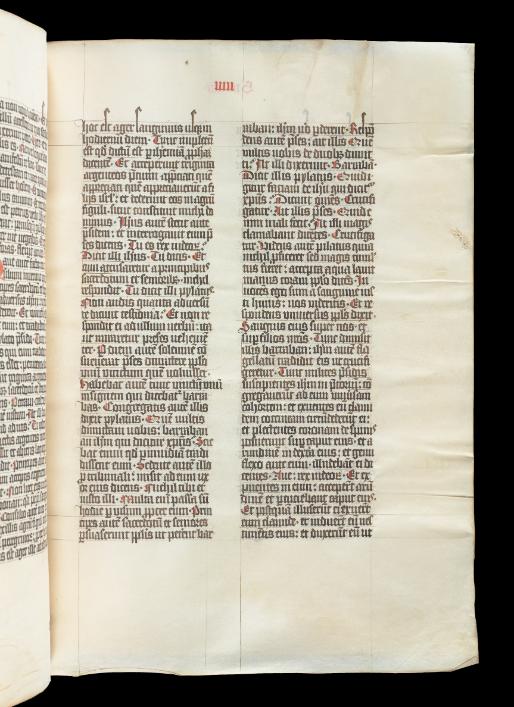 IIII
hoc est ager sanguinis usq̨ in
hodiernū diem. Tunc impletū
est qd̄ dictū est ꝑ iheremiā ꝓphā
dicentē. Et acceperunt triginta
argenteos p̄ciū appciati quē
appreciauerūt a fi
lijs isrl̄: et dederunt eos in agrū
figuli. sicut constituit michi dn̄s
Ihesus autē stetit ante
p̄sidem: et interrogauit eum p̄
ses dicens. Tu es rex iudeoꝝ:
Dicit illi ihesus. Tu dicis. Et
cū accusaretur a principibꝰ
sacerdotū et senioribꝫ. nichil
respondit. Tunc dicit illi pylatꝰ
Non audis quanta aduersū
te dicunt testimonia: Et non re
spondit ei ad ullum uerbū: ita
ut miraretur preses uehemen
ter. Per diem autē solempnē cō
sueuerat p̄ses dimittere ꝓplo
unū uinctum quem uoluissent.
Habebat autē tunc uinctū unū
insignem qui dicebatur bara
bas. Congregatis autē illis
dixit pylatus. Quē uultis
dimittam uobis: barraban
an ihm̄ qui dicitur xp̄us. Scie
bat enim qd̄ ꝑ inuidiā tradi
dissent eum. Sedente autē illo
ꝓ tribunali: misit ad eum ux
or eius dicens. Nichil tibi et
iusto illi. Multa eni passa sū
hodie ꝑ uisum ꝓpter eum. Prin
cipes autē sacerdotū et seniores
ꝑsuaserunt ꝓplis ut peterēt bar
raban: ihm̄ uero ꝑderent. Respō
dens autē p̄ses: ait illis. Quē
uultis uobis de duobꝫ dimit
ti: At illi dixerunt. Baraban.
Dicit illis pylatus. Quid i
gitur faciam de ihu qui dicitꝰ
xp̄us: Dicunt omēs. Crucifi
gatur. Ait illis p̄ses. Quid e
nim mali fecit: At illi magis
clamabant dicētes. Crucifiga
tur. Videns autē pilatus quia
nichil ꝓficeret sed magis tumul
tus fieret: accepta aqua lauit
manus coram ꝓplo dicēs. In
nocens ego sum a sanguine ius
ti huius: uos uideritis. Et re
spondens uniuersus ꝓplus dixit.
Sanguis eius super nos. et
suꝑ filios nr̄os. Tunc dimisit
illis barraban: ihm̄ autē fla
gellatū tradidit eis ut crucifi
geretur. Tunc milites p̄sidis
suscipientes ihm̄ in p̄torio: cō
gregauerūt ad eum uniuersam
cohortem: et exuentes eū clami
dem coccineam circūdederūt ei:
et plectentes coronam de spinis
posuerunt suꝑ caput eius. et a
rundinē in dextra eius: et genu
flexo ante eum. illudebāt ei di
centes. Aue: rex iudeoꝝ. Et ex
puentes in eum: acceperūt aru
dinē et ꝑcuciebant caput eiꝰ.
Et postquā illuserūt ei exuerūt
eum clamide. et induerūt eū ues
timentis eius: et duxerūt eū ut